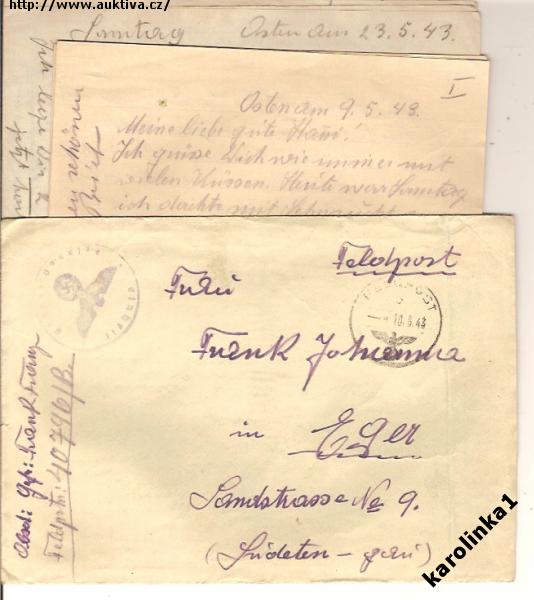 (http://www.auktiva.cz/)
Samtag Osten am 23.5.43.
I
Osten am 9.5.43.
Meine liebe gute Hani!
Ich grüsse Dich wie immer mit
vielen Küssen. Heute war Samtag
ich dachte mit Sehnsucht
schönen
Brief
Feldpost
Frau
FELDPOST
10.5.43
Frank Johanna
in Eger
Landstrasse No 9.
(Sudeten-gau)
Absch: Gefr: Frank Franz
Feldpstn: 40796/B
karolinka1